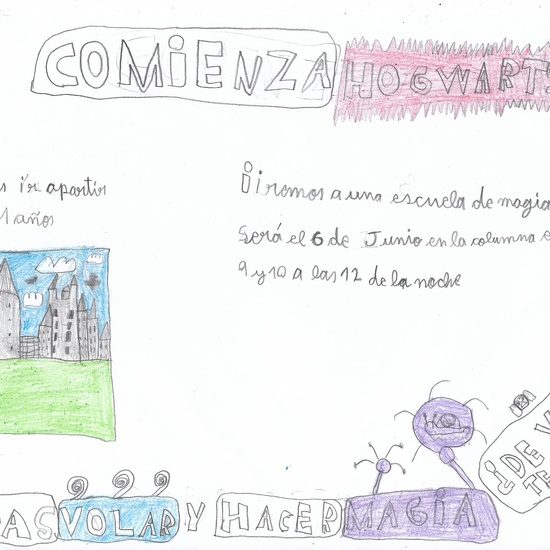 COMIENZA HOGWARTS
s ir a partir
años
¡iremos a una escuela de magia
Será el 6 de Junio en la columna e
9 y 10 a las 12 de la noche
¿DE V
TE
AS VOLAR Y HACER MAGIA